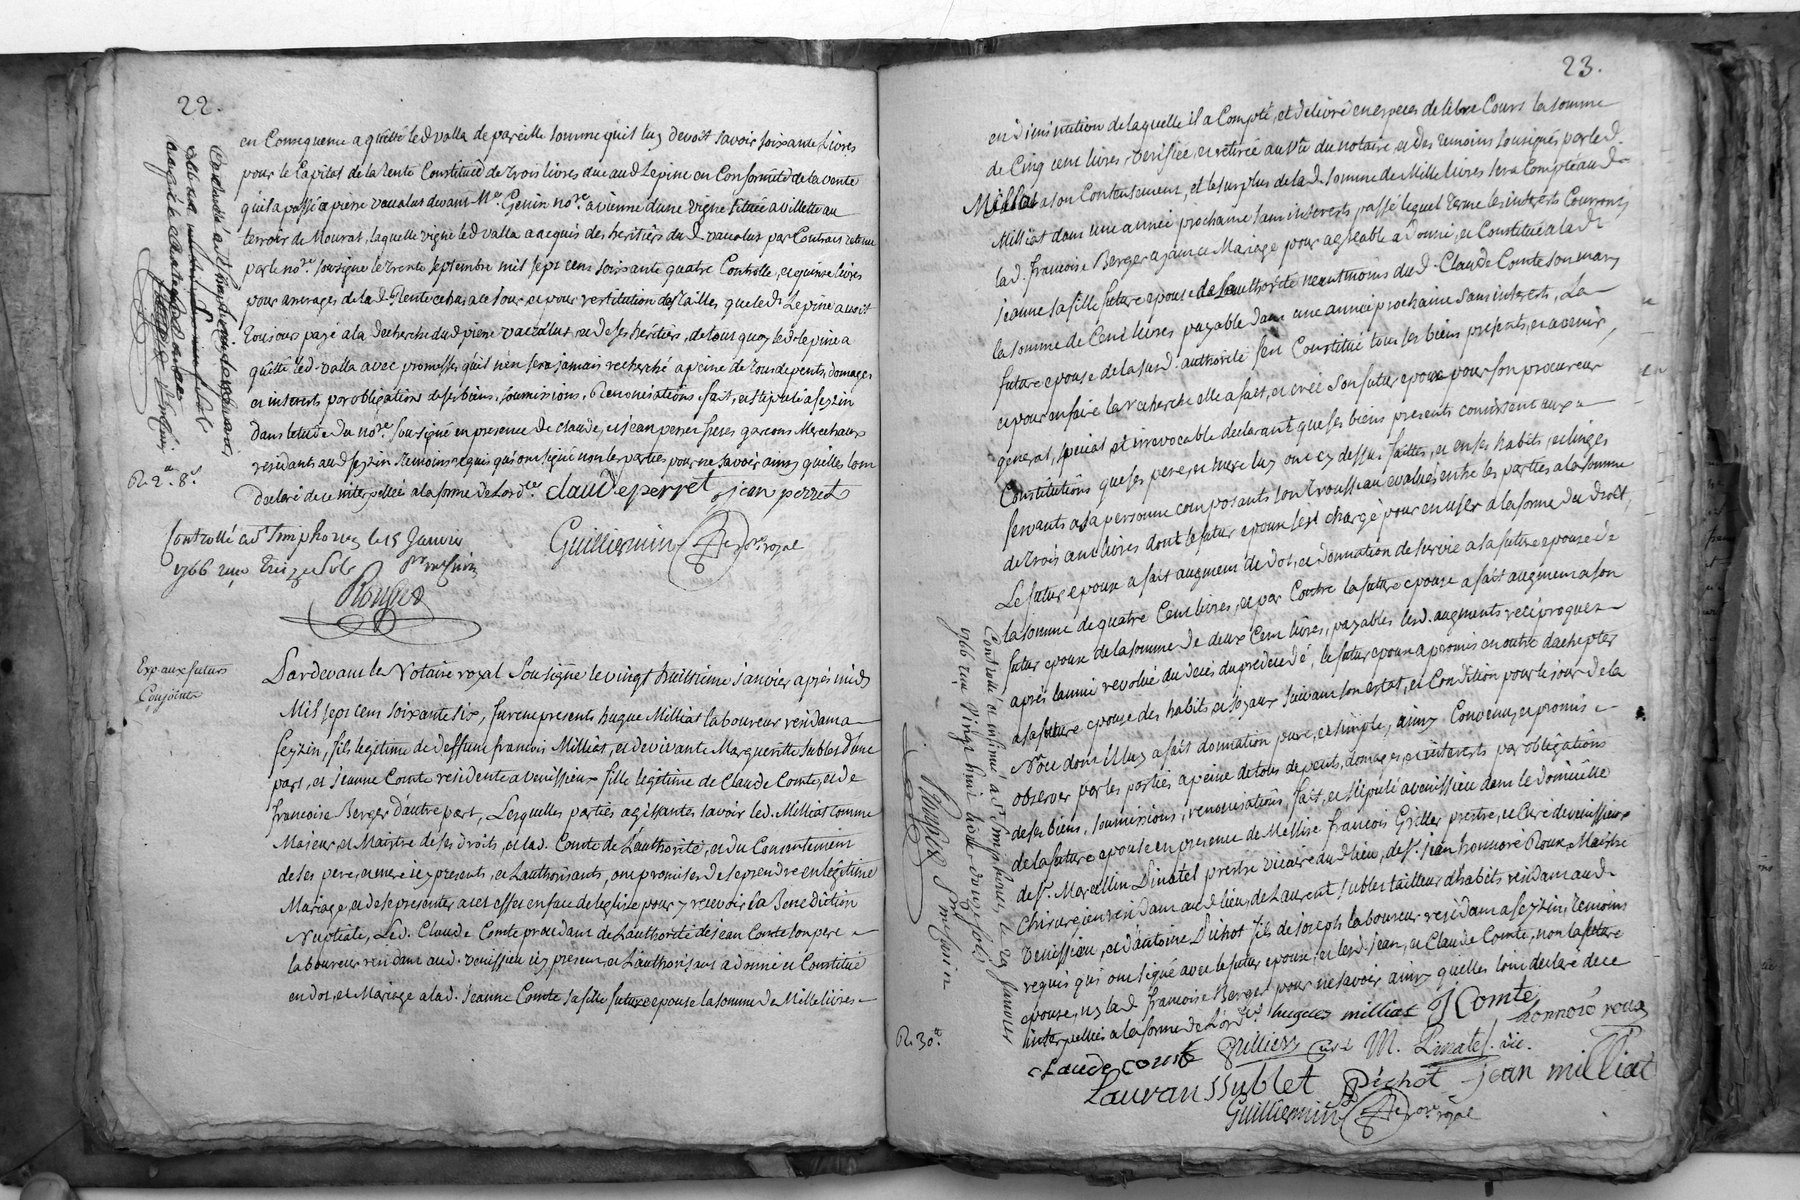 22.
en Consequence a quitté led valla de pareille somme quil luy devoit savoir soixante Livres
pour le Capital de la rente Constituée de trois livres due aud Lepine en Conformité de la vente
quil a passé a pierre vacalus devant Me. Genin nore. a vienne d'une vigne située a villette au
terroir de Mourat, laquelle vigne led valla a acquis des heritiers dud. vacalus par Contrat
par le nore. soussigné le trente septembre mil sept cent soixante quatre Controllé, et quinze livres
pour arrerages de lad. Rente et pour restitution des tailles que led. Lepine avoit
toujours payé a la decharge dud pierre vacalus, ou de ses héritiers, de tout quoy led lepine a
quitté led. valla avec promesses quil n'en sera jamais recherché a peine de tous depents, domages
et interets par obligations de ses biens, soumissions, Renonciations, fait, et stipulé a feyzin
dans letude du nore. soussigné en presence de claude, et jean perret freres garcons Marechaux
residants aud feyzin temoins requis qui ont signé non les parties pour ne savoir ainsy quelles lont
declaré de ce interpellées a la forme de Lordce. claude perret jean perret
R. 2.# 8.s
Controllé a st Simphorien le 15 Janvier
1766 reçu treize sols
Guilliermin nore. royal
Exp aux futurs
Conjoints
Pardevant le Notaire royal Soussigné le vingt huitieme janvier après midy
Mil sept cent soixante six, furent presents hugue Milliat laboureur residant a
feyzin, fils legitime de deffunt francois Milliat, et de vivante Margueritte sublet d'une
part, et jeanne Comte residente a venissieux fille legitime de Claude Comte, et de
francoise Berger d'autre part, Lesquelles parties agissantes savoir led. Milliat comme
Majeur, et Maistre de ses droits, et lad. Comte de l'authorité, et du Consentement
de ses pere, et mere icy presents, et l'authorisants, ont promis de se prendre en legitime
Mariage, et de se presenter a cet effet en face de leglise pour y recevoir la Benediction
Nuptiale, Led. Claude Comte procedant de l'authorité de jean Comte son pere
laboureur residant aud. venissieu icy present, et l'authorisant a donné et Constitué
en dot, et Mariage a lad. jeanne Comte sa fille future epouse la somme de Mille livres
23.
en diminution de laquelle il a Compté, et delivré en especes de libre Cours la somme
de Cinq cent livres verifiée, et retirée au vû du notaire, et des temoins soussignés par led.
Milliat a son Contentement, et le surplus de lad. somme de Mille livres sera Compté aud
Milliat dans une année prochaine sans interests, passé lequel terme les interets Courront,
lad. francoise Berger ayant ce Mariage pour agreable a donné, et Constitué a lad.
jeanne sa fille future epouse de l'authorité neantmoins dud. Claude Comte son mary
la somme de Cent livres payable dans une année prochaine sans interests, La
future epouse de la susd. authorité s'est Constitué tous ses biens presents, et avenir,
et pour en faire la recherche elle a fait, et créé son futur epoux pour son procureur
general, special et irrevocable declarant que ses biens presents consistent aux
Constitutions que ses pere, et mere luy ont cy dessus faittes, et en ses habits, et linges
servants a sa personne composants son trousseau evalués entre les parties a la somme
de trois cent livres dont le futur epoux s'est chargé pour en user a la forme du droit,
Le futur epoux a fait augment de dot, et donnation de survie a la future epouse de
la somme de quatre Cent livres, et par Contre la future epouse a fait augment a son
futur epoux de la somme de deux Cent livres, payables lesd. augments reciproques
après l'an revolu du decès du predecedé, le futur epoux a promis en outre d'achepter
a sa future epouse des habits, et joyaux suivant son estat, et Condition pour le jour de la
Noce dont il luy a fait donnation pure, et simple, ainsy Convenu, et promis
observer par les parties a peine de tous depents, domages, et interests par obligations
de ses biens, soumissions, renonciations, fait, et stipulé a venissieu dans le domicille
de la future epouse en presence de Messire francois Grillet prestre, et Curé de venissieux
de sr. Marcellin Dinatel prestre vicaire dud lieu, de sr. jean honnoré Roux Maistre
Chirurgien residant aud lieu, de Laurent sublet tailleur d'habits residant aud.
venissieu, et d'antoine Pichot fils de joseph laboureur residant a feyzin, temoins
requis qui ont signé avec le futur epoux, et lesd. jean, et Claude Comte, non la future
epouse, ny lad. francoise Berger pour ne savoir ainsy quelles lont declaré de ce
interpellées a la forme de Lordce. hugues milliat J Comte honnoré roux
claude comte
R. 30.s
Lauran ssublet Pichot jean milliat
Guilliermin nore. royal
Controllé et insinué a st Simphorien, le 29 Janvier
1766 reçu vingt huit livres douze sols